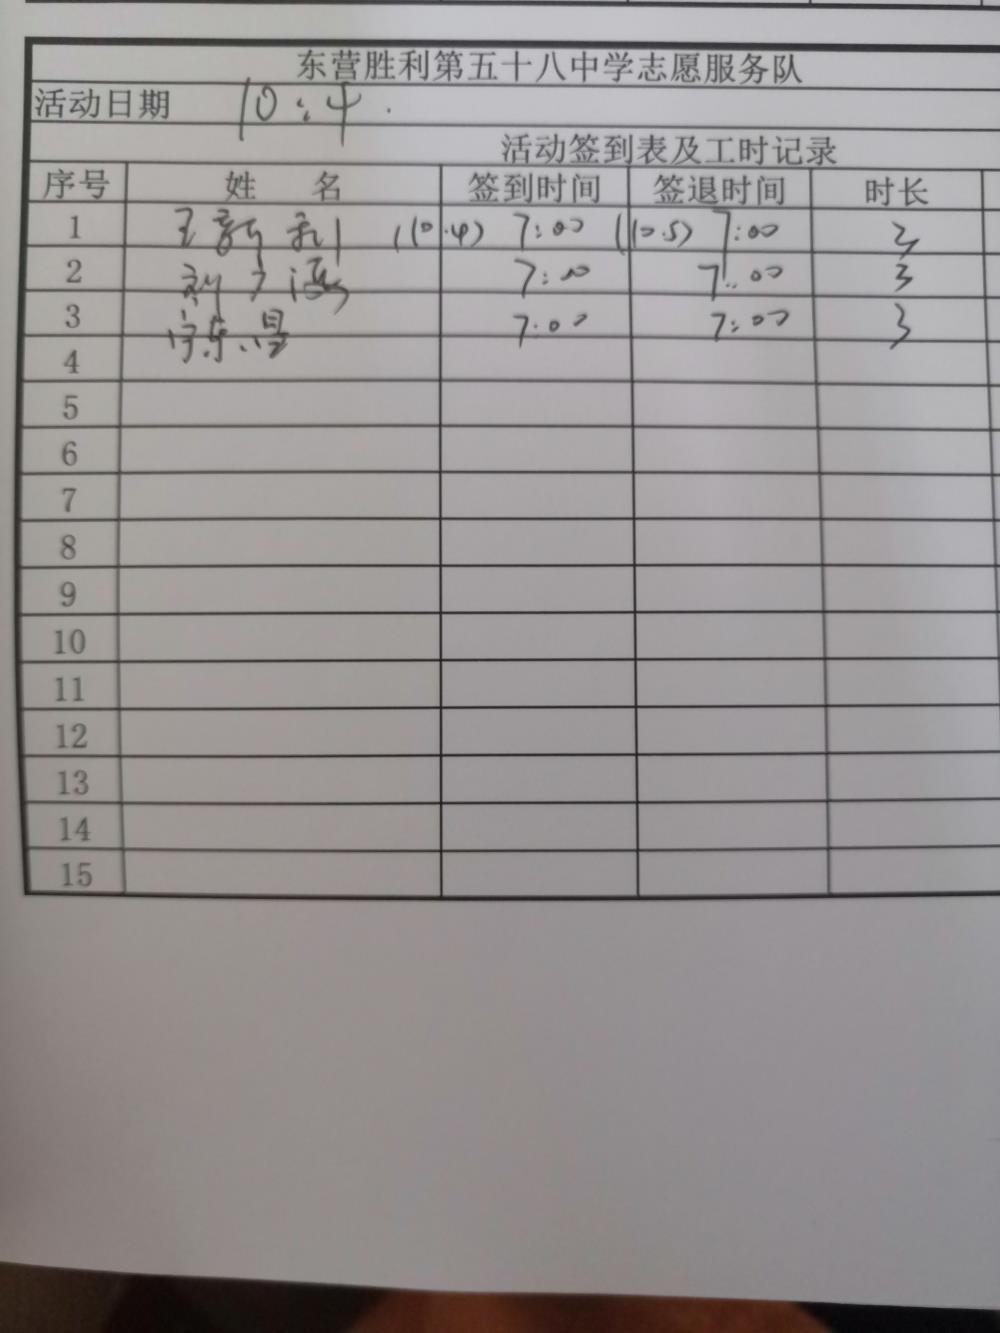 东营胜利第五十八中学志愿服务队
活动日期 10:4.
活动签到表及工时记录
序号 姓 名 签到时间 签退时间 时长
1 王新利 (10.4) 7:00 (10.5) 7:00 3
2 刘 7:00 7:00 3
3 7:00 7:00 3
4
5
6
7
8
9
10
11
12
13
14
15